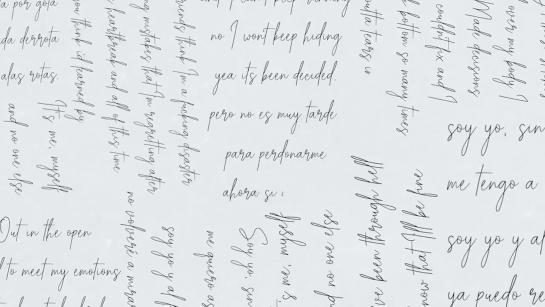 a por gota
da derrota
alas rotas.
no I won't keep hiding
yea it's been decided.
pero no es muy tarde
para perdonarme
ahora si
Out in the open
to meet my emotions
soy yo, sin
me tengo a
soy yo y al
ya puedo re
you think id learned by
heartbreak and all of this time
mistakes that I'm regretting after
friends think I'm a fucking disaster
It's me, myself
and no one else
no volveré a mirar
soy yo y al
me quiero as
Soy yo, sin
It's me, myself
and no one else
I've been through hell
know that I'll be fine
tears in
bottom so many times
couldn't fix and I
Made decisions
over my body I